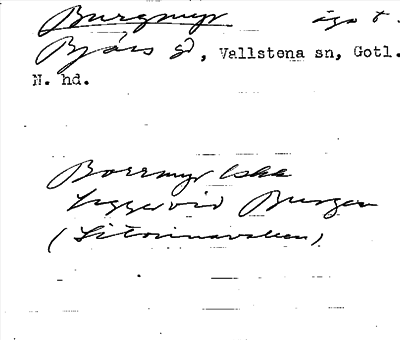 Burgmyr ägo t.
Bjärs gd, Vallstena sn, Gotl.
N. hd.
Borrmyr Cska
Ligger vid Burgen
(Litorinavallen)